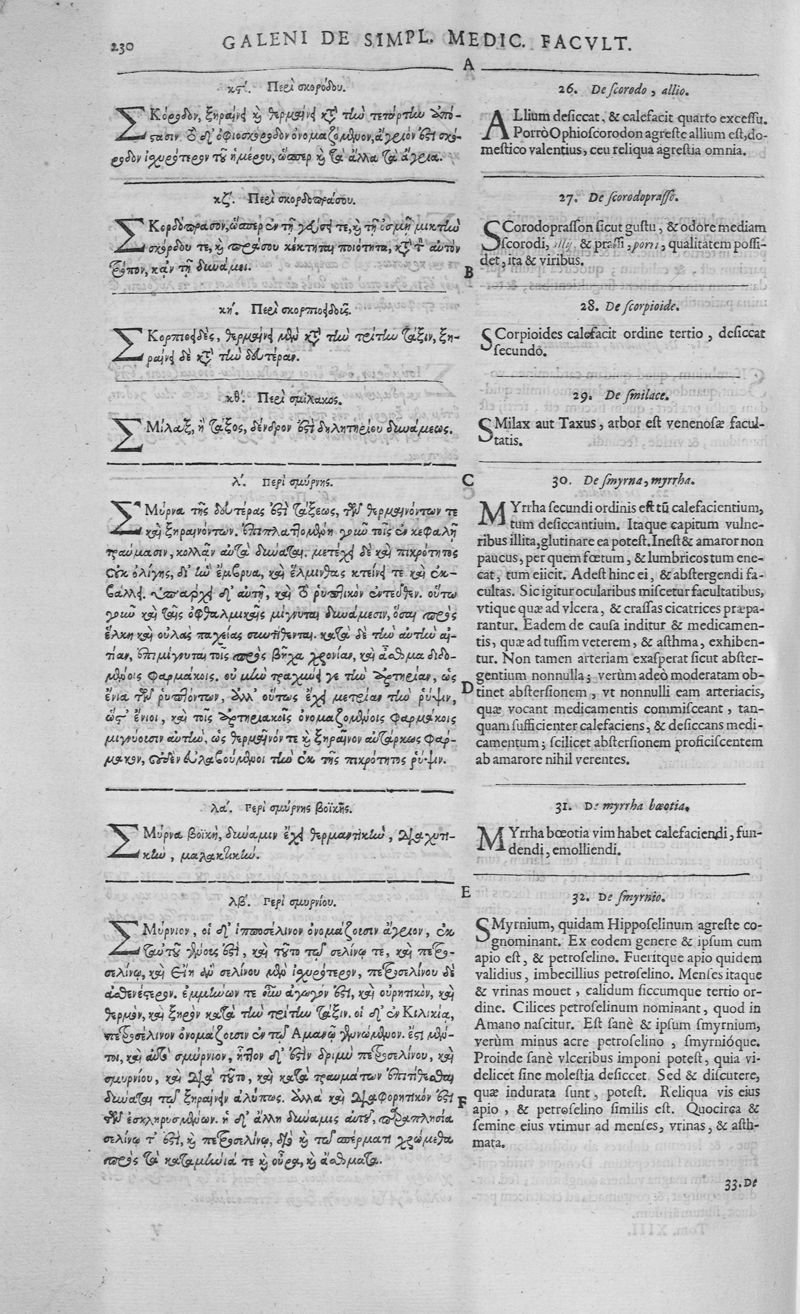 230
GALENI DE SIMPL. MEDIC. FACVLT.
κϛ΄. Περὶ σκορόδου.
Σκόροδον, ξηραίνει καὶ θερμαίνει κατὰ τὴν τετάρτην ἀπό-
στασιν. τὸ δ' ὀφιοσκόροδον ὀνομαζόμενον, ἄγριον ἐστὶ σκό-
ροδον ἰσχυρότερον τοῦ ἡμέρου, ὥσπερ καὶ τὰ ἄλλα τὰ ἄγρια.
κζ΄. Περὶ σκορδοπράσου.
Σκορδόπρασον, ὥσπερ ἐν τῇ γεύσει τε, καὶ τῇ ὀσμῇ μικτὴν
σκόρδου τε, καὶ πράσου κέκτηται ποιότητα, κατὰ τὸν αὐτὸν
τρόπον, κἀν τῇ δυνάμει.
κη΄. Περὶ σκορπιοειδοῦς.
Σκορπιοειδὲς, θερμαίνει μὲν κατὰ τὴν τρίτην τάξιν, ξη-
ραίνει δὲ κατὰ τὴν δευτέραν.
κθ΄. Περὶ σμίλακος.
Σμίλαξ, ἢ τάξος, δένδρον ἐστὶ δηλητηρίου δυνάμεως.
λ΄. Περὶ σμύρνης.
Σμύρνα τῆς δευτέρας ἐστὶ τάξεως, τῶν θερμαινόντων τε
καὶ ξηραινόντων. ἐπιπλαττομένη γοῦν τοῖς ἐν κεφαλῇ
τραύμασιν, κολλᾶν αὐτὰ δύναται. μετέχει δὲ καὶ πικρότητος
οὐκ ὀλίγης, δι' ἣν ἔμβρυα, καὶ ἕλμινθας κτείνει τε καὶ ἐκ-
βάλλει. ὑπάρχει δ' αὐτῇ, καὶ τὸ ῥυπτικὸν ἐντεῦθεν. οὕτω
γοῦν καὶ ταῖς ὀφθαλμικαῖς μίγνυται δυνάμεσιν, ὅσαι πρὸς
ἕλκη καὶ οὐλὰς παχείας συντίθενται. κατὰ δὲ τὴν αὐτὴν αἰ-
τίαν, ἐπιμίγνυται τοῖς πρὸς βῆχα χρονίαν, καὶ ἄσθμα διδο-
μένοις φαρμάκοις. οὐ μὴν τραχύνει γε τὴν ἀρτηρίαν, ὡς
ἔνια τῶν ῥυπτόντων, ἀλλ' οὕτως ἔχει μετρίαν τὴν ῥύψιν,
ὥστ' ἔνιοι, καὶ τοῖς ἀρτηριακοῖς ὀνομαζομένοις φαρμάκοις
μιγνύουσιν αὐτὴν, ὡς θερμαῖνόν τε καὶ ξηραῖνον αὐτάρκως φάρ-
μακον, οὐδὲν εὐλαβούμενοι τὴν ἐκ τῆς πικρότητος ῥύψιν.
λα΄. Περὶ σμύρνης βοϊκῆς.
Σμύρνα βοϊκὴ, δύναμιν ἔχει θερμαντικὴν, διαχυτι-
κὴν, μαλακτικήν.
λβ΄. Περὶ σμυρνίου.
Σμύρνιον, οἱ δ' ἱπποσέλινον ὀνομάζουσιν ἄγριον, ἐκ
ταὐτοῦ γένους ἐστὶ, καὶ τοῦτο τῷ σελίνῳ τε, καὶ πετρο-
σελίνῳ, καὶ εἴη ἂν σελίνου μὲν ἰσχυρότερον, πετροσελίνου δὲ
ἀσθενέστερον. ἐμμήνων τε οὖν ἀγωγόν ἐστι, καὶ οὐρητικὸν, καὶ
θερμὸν, καὶ ξηρὸν κατὰ τὴν τρίτην τάξιν. οἱ δ' ἐν Κιλικίᾳ,
πετροσέλινον ὀνομάζουσιν ἐν τῷ Ἀμανῷ γενόμενον. ἔστι μέν-
τοι, καὶ αὐτὸ σμύρνιον, ἧττον δ' ἐστὶν δριμὺ πετροσελίνου, καὶ
σμυρνίου, καὶ διὰ τοῦτο, καὶ κατὰ τραυμάτων ἐπιτίθεσθαι
δύναται τῷ ξηραίνειν ἀλύπως. ἀλλὰ καὶ διαφορητικόν ἐστι
τῶν ἐσκληρυσμένων. ἡ δ' ἄλλη δύναμις αὐτοῦ, παραπλησία
σελίνῳ τ' ἐστὶ, καὶ πετροσελίνῳ, διὸ καὶ τῷ σπέρματι χρώμεθα
πρὸς τὰ καταμήνιά τε καὶ οὖρα, καὶ ἄσθματα.
A
B
C
D
E
F
26. De scorodo, allio.
ALlium desiccat, & calefacit quarto excessu.
Porrò Ophioscorodon agreste allium est, do-
mestico valentius, ceu reliqua agrestia omnia.
27. De scorodoprasso.
SCorodoprasson sicut gustu, & odore mediam
scorodi, allij, & prassi, porri, qualitatem possi-
det, ita & viribus.
28. De scorpioide.
SCorpioides calefacit ordine tertio, desiccat
secundo.
29. De smilace.
SMilax aut Taxus, arbor est venenosæ facul-
tatis.
30. De smyrna, myrrha.
MYrrha secundi ordinis est tũ calefacientium,
tum desiccantium. Itaque capitum vulne-
ribus illita, glutinare ea potest. Inest & amaror non
paucus, per quem fœtum, & lumbricos tum ene-
cat, tum eiicit. Adest hinc ei, & abstergendi fa-
cultas. Sic igitur ocularibus miscetur facultatibus,
vtique quæ ad vlcera, & crassas cicatrices præpa-
rantur. Eadem de causa inditur & medicamen-
tis, quæ ad tussim veterem, & asthma, exhiben-
tur. Non tamen arteriam exasperat sicut abster-
gentium nonnulla; verùm adeò moderatam ob-
tinet abstersionem, vt nonnulli eam arteriacis,
quæ vocant medicamentis commisceant, tan-
quam sufficienter calefaciens, & desiccans medi-
camentum; scilicet abstersionem proficiscentem
ab amarore nihil verentes.
31. De myrrha bœotia.
MYrrha bœotia vim habet calefaciendi, fun-
dendi, emolliendi.
32. De smyrnio.
SMyrnium, quidam Hipposelinum agreste co-
gnominant. Ex eodem genere & ipsum cum
apio est, & petroselino. Fueritque apio quidem
validius, imbecillius petroselino. Menses itaque
& vrinas mouet, calidum siccumque tertio or-
dine. Cilices petroselinum nominant, quod in
Amano nascitur. Est sanè & ipsum smyrnium,
verùm minus acre petroselino, smyrnióque.
Proinde sanè vlceribus imponi potest, quia vi-
delicet sine molestia desiccet. Sed & discutere,
quæ indurata sunt, potest. Reliqua vis eius
apio, & petroselino similis est. Quocirca &
semine eius vtimur ad menses, vrinas, & asth-
mata.
33. De